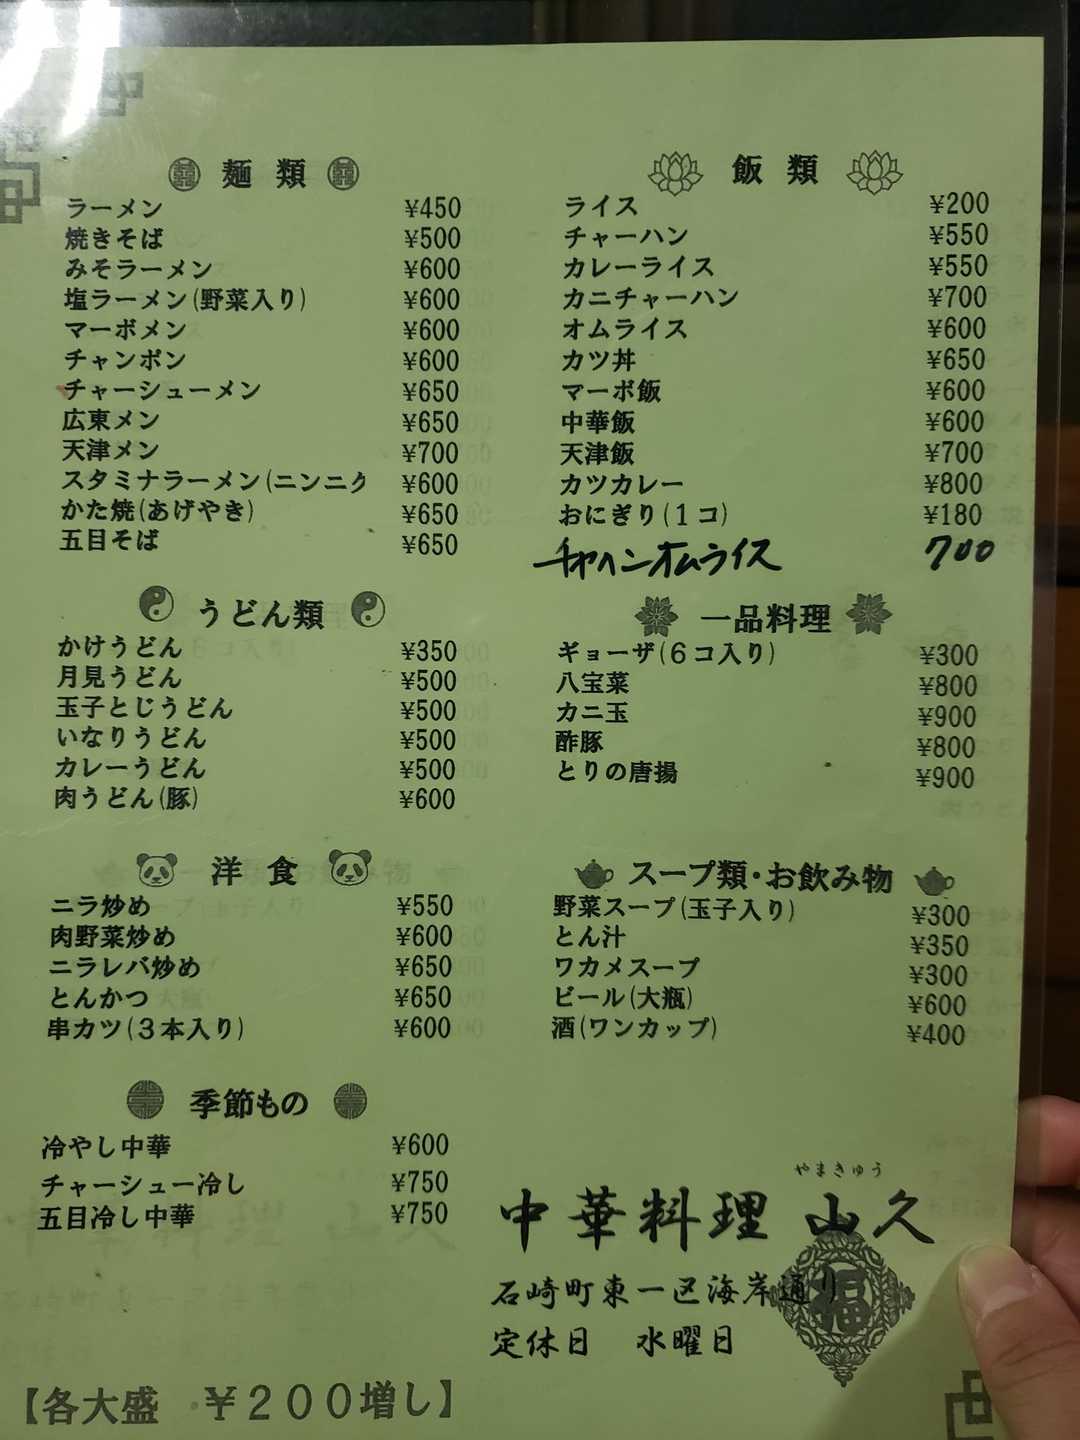 麺類
ラーメン ¥450
焼きそば ¥500
みそラーメン ¥600
塩ラーメン(野菜入り) ¥600
マーボメン ¥600
チャンポン ¥600
チャーシューメン ¥650
広東メン ¥650
天津メン ¥700
スタミナラーメン(ニンニク ¥600
かた焼(あげやき) ¥650
五目そば ¥650
うどん類
かけうどん ¥350
月見うどん ¥500
玉子とじうどん ¥500
いなりうどん ¥500
カレーうどん ¥500
肉うどん(豚) ¥600
洋食
ニラ炒め ¥550
肉野菜炒め ¥600
ニラレバ炒め ¥650
とんかつ ¥650
串カツ(3本入り) ¥600
季節もの
冷やし中華 ¥600
チャーシュー冷し ¥750
五目冷し中華 ¥750
【各大盛 ¥200増し】
飯類
ライス ¥200
チャーハン ¥550
カレーライス ¥550
カニチャーハン ¥700
オムライス ¥600
カツ丼 ¥650
マーボ飯 ¥600
中華飯 ¥600
天津飯 ¥700
カツカレー ¥800
おにぎり(1コ) ¥180
チャーハンオムライス 700
一品料理
ギョーザ(6コ入り) ¥300
八宝菜 ¥800
カニ玉 ¥900
酢豚 ¥800
とりの唐揚 ¥900
スープ類・お飲み物
野菜スープ(玉子入り) ¥300
とん汁 ¥350
ワカメスープ ¥300
ビール(大瓶) ¥600
酒(ワンカップ) ¥400
やまきゅう
中華料理 山久
福
石崎町東一区海岸通り
定休日 水曜日